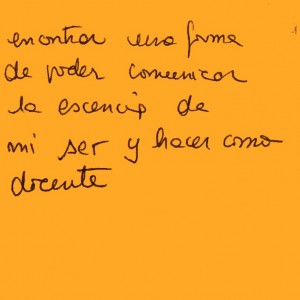 encontrar una forma
de poder comunicar
la escencia de
mi ser y hacer como
docente